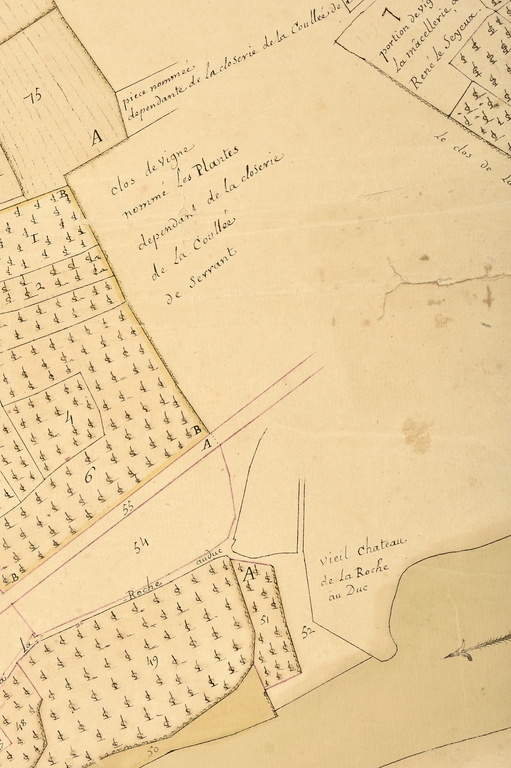 75
A
piece nommée
dependante de la closerie de la Coullée de
7
portion de vig
La mâcellerie
René le Seyeux
Le clos de La
clos de vigne
nommé Les Plantes
dependant de la closerie
de la Coullée
de Serrant
B
1
2
4
6
B
A
B
55
54
la Roche auduc
A
49
51
52
48
50
vieil chateau
de La Roche
au Duc